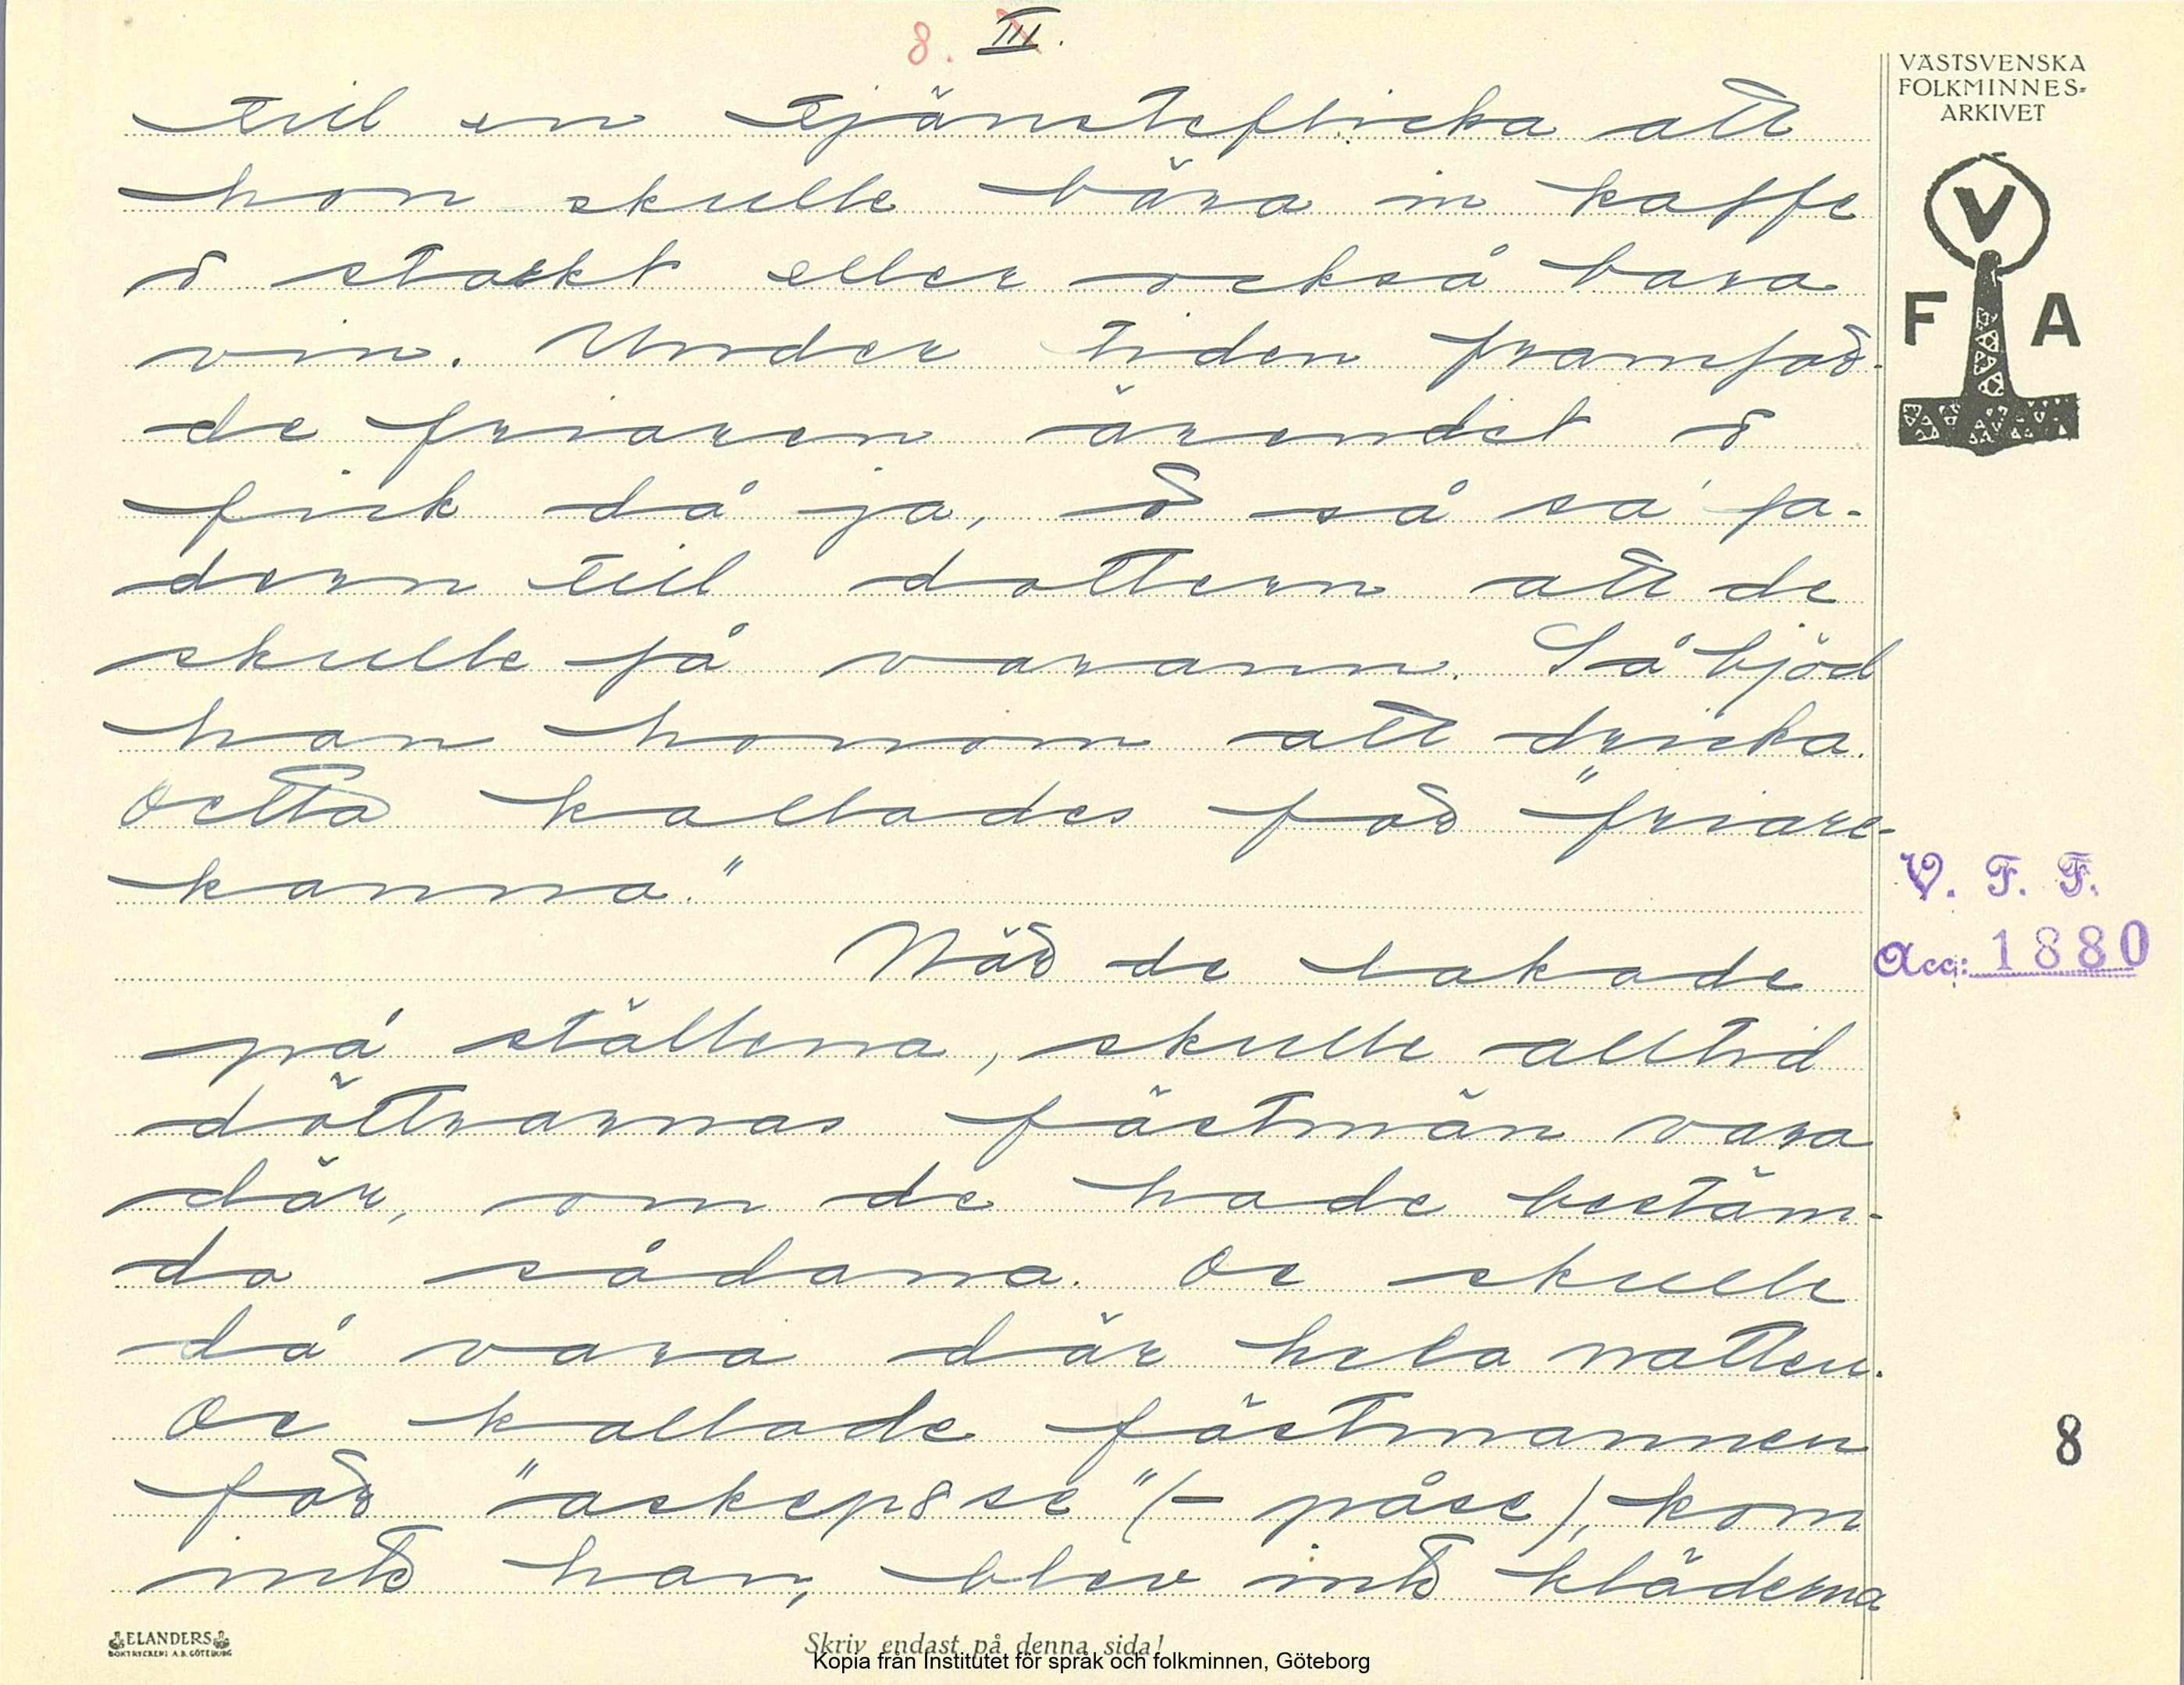 8. III.
VÄSTSVENSKA
FOLKMINNES=
ARKIVET
V
F A
till en tjänsteflicka att
hon skulle bära in kaffe
o starkt eller också bara
vin. Under tiden framför-
de friaren ärendet o
fick då ja, o så sa' fa-
dern till dottern att de
skulle få varann. Så bjöd
han honom att dricka.
Detta kallades för "friare-
kanna."
V. F. F.
Acc: 1880
När de bakade
på ställena, skulle alltid
döttrarnas fästmän vara
där, om de hade bestäm-
da sådana. De skulle
då vara där hela natten.
De kallade fästmannen
8
för "askepose" (- påse), kom
inte han, blev inte kläderna
ELANDERS
BOKTRYCKERI A.B. GÖTEBORG
Skriv endast på denna sida!
Kopia från Institutet för språk och folkminnen, Göteborg